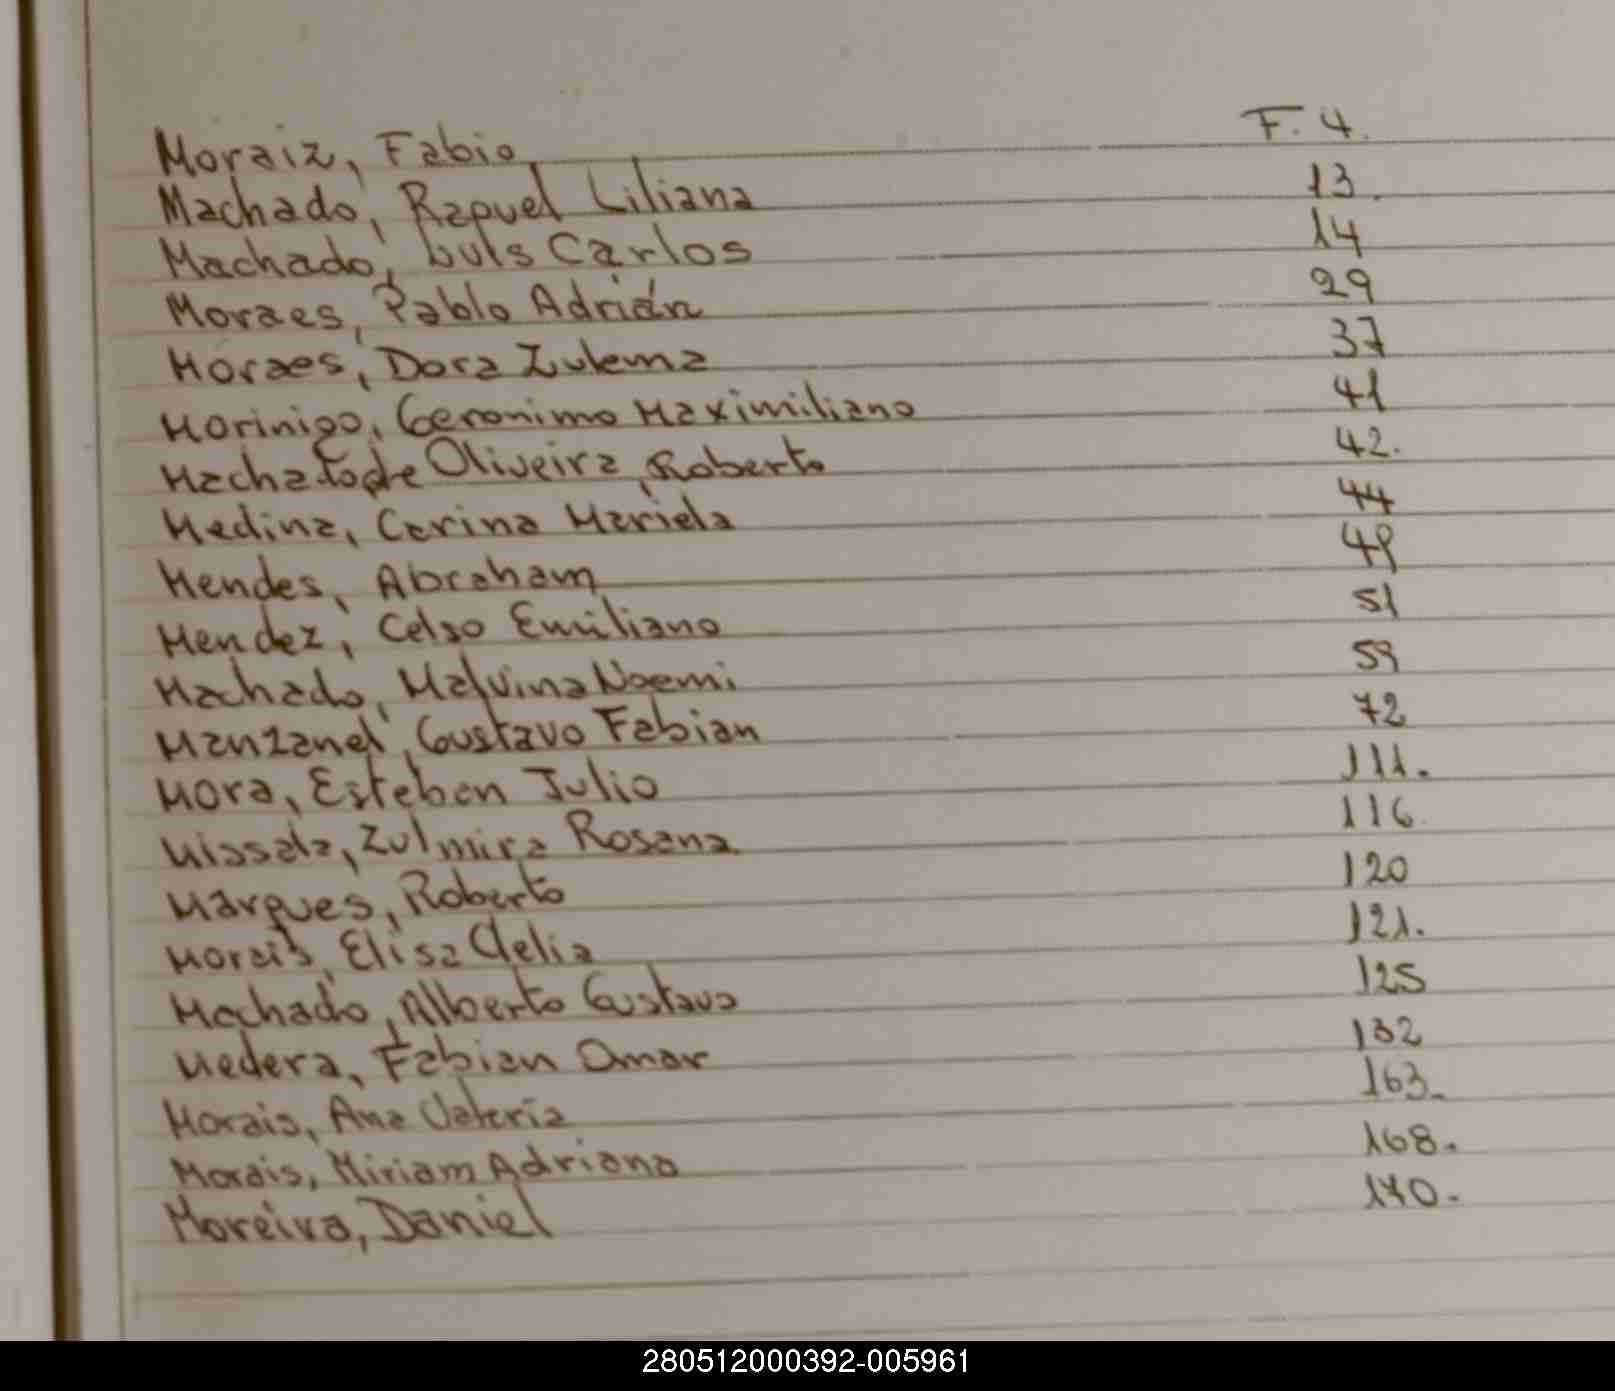 Moraiz, Fabio F. 4.
Machado, Raquel Liliana 13.
Machado, Luis Carlos 14
Moraes, Pablo Adrián 29
Moraes, Dora Zulema 37
Morinigo, Geronimo Maximiliano 41
Machado de Oliveira, Roberto 42.
Medina, Carina Mariela 44
Mendes, Abraham 49
Mendez, Celso Emiliano 51
Machado, Malvina Noemi 59
Manzanel, Gustavo Fabian 72
Mora, Esteban Julio 111.
Zulmira Rosana 116
Marques, Roberto 120
Morais, Elisa Clelia 121.
Machado, Alberto Gustavo 125
Medera, Fabian Omar 132
Morais, Ana Valeria 163.
Morais, Miriam Adriana 168.
Moreira, Daniel 170.
280512000392-005961